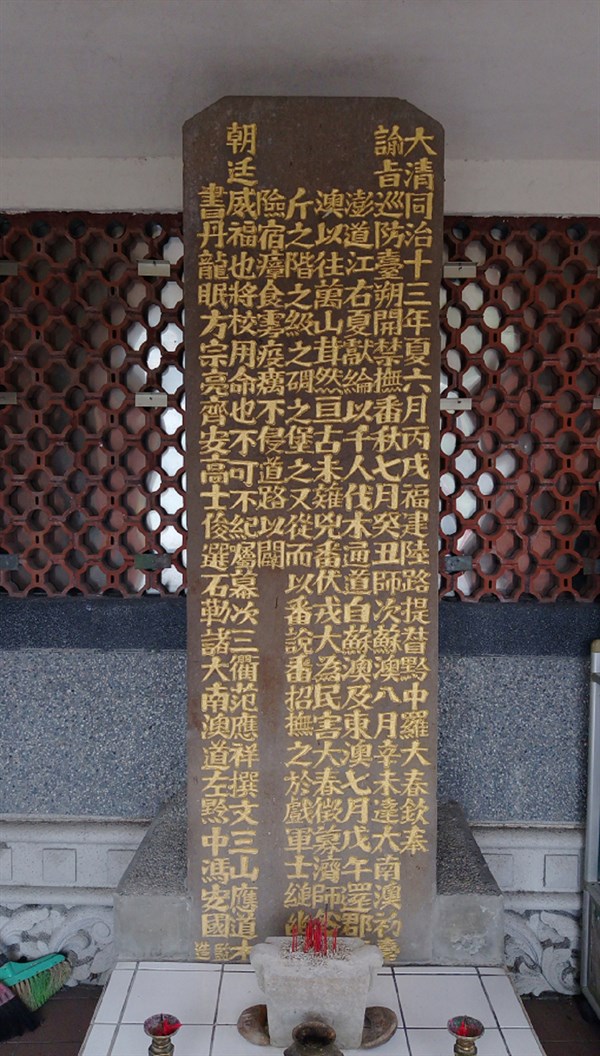 大清同治十三年夏六月丙戌福建陸路提督黔中羅大春欽奉
諭旨巡防臺朔開禁撫番秋七月癸丑師次蘇澳八月辛未達大南澳初臺
澎道江右夏獻綸以千人伐木通道自蘇澳及東澳七月戊午還郡
澳以往萬山茸然亘古未薙兇番伏戎大為民害大春徵募濟師
斤之階之級之碉之堡之又從而以番說番招撫之於戲軍士縋幽
險宿瘴食霧疫癘不侵道路以闢
朝廷威福也將校用命也不可不紀屬幕次三衢范應祥撰文三山應道本
書丹龍眠方宗亮齊安高士俊選石勒諸大南澳道左黔中馮安國監造